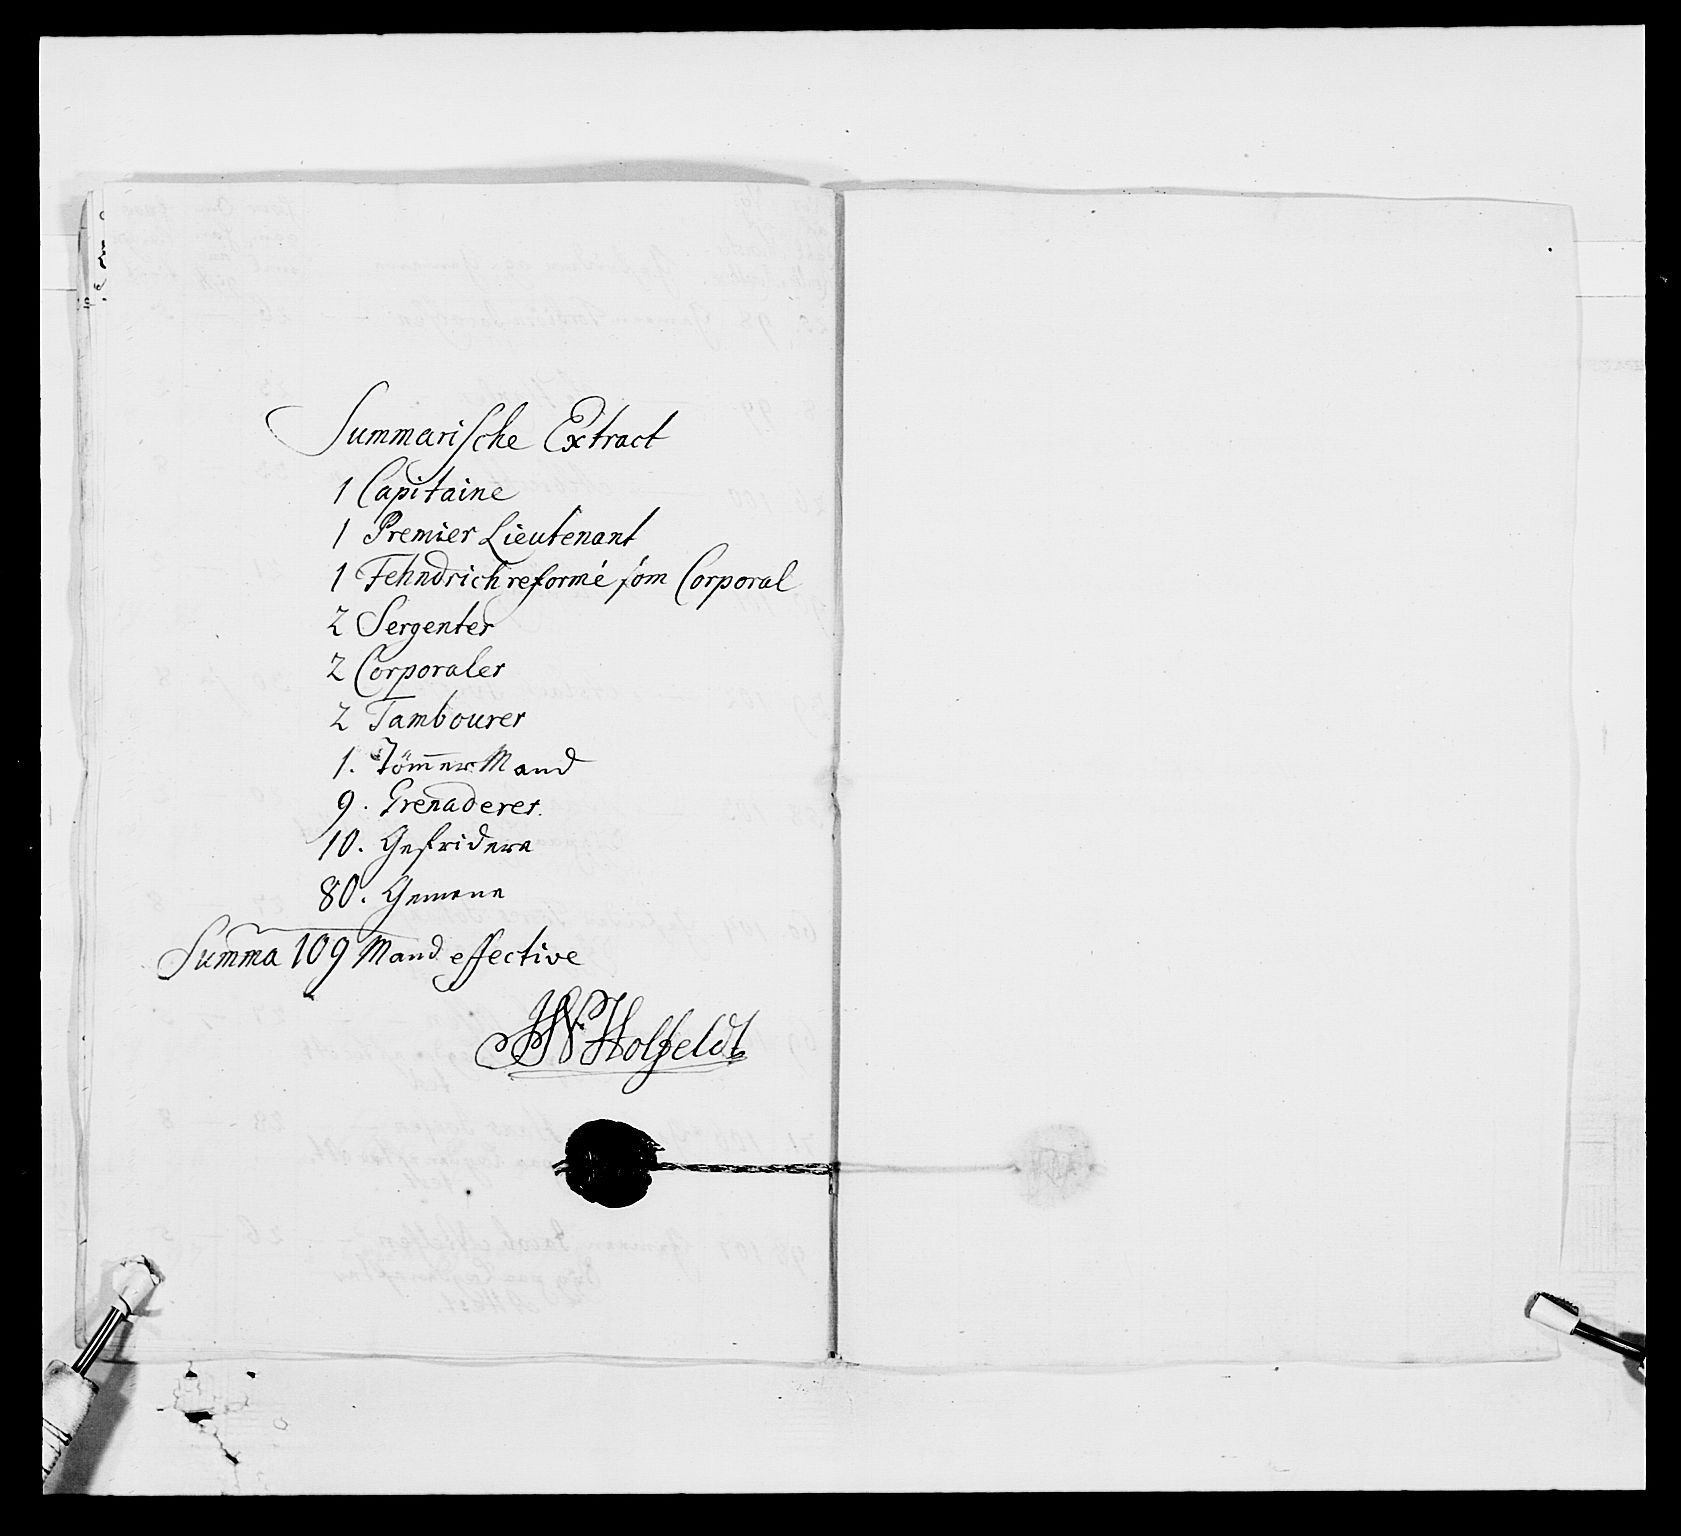 Summarische Extract
1 Capitaine
1 Premier Lieutenant
1 Fehndrich reformé som Corporal
2 Sergenter
2 Corporaler
2 Tambourer
1. Töm̄er Mand
9. Grenaderer.
10. Gefridere
80. Gemene
Summa 109 Mand effective
Holfeldt